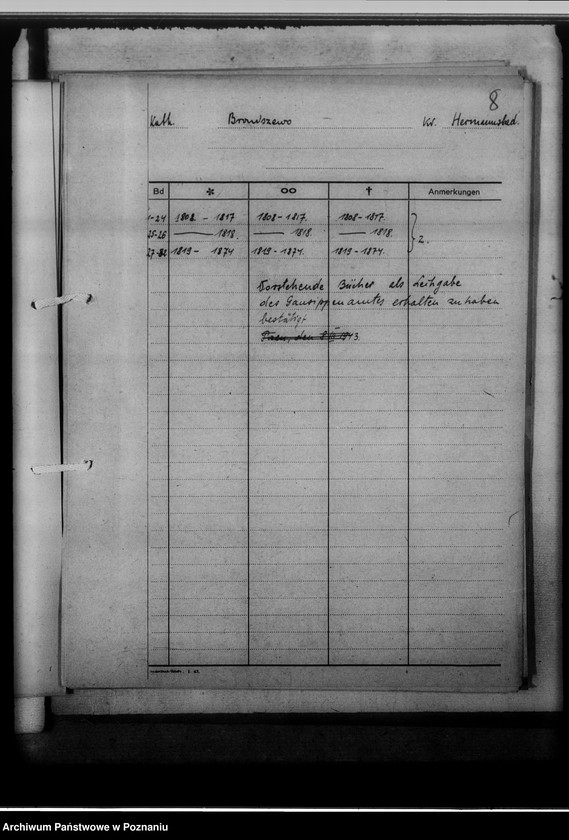 8
Kath. Broniszewo Kr. Hermannsbad.
Bd * oo † Anmerkungen
1-24 1808 - 1817 1808 - 1817. 1808 - 1817.
25-26 — 1818. — 1818. — 1818. } Z.
1819 - 1874 1819 - 1874. 1819 - 1874.
Vorstehende Bücher als Leihgabe
des Gausippenamtes erhalten zu haben
bestätigt
Archiwum Państwowe w Poznaniu